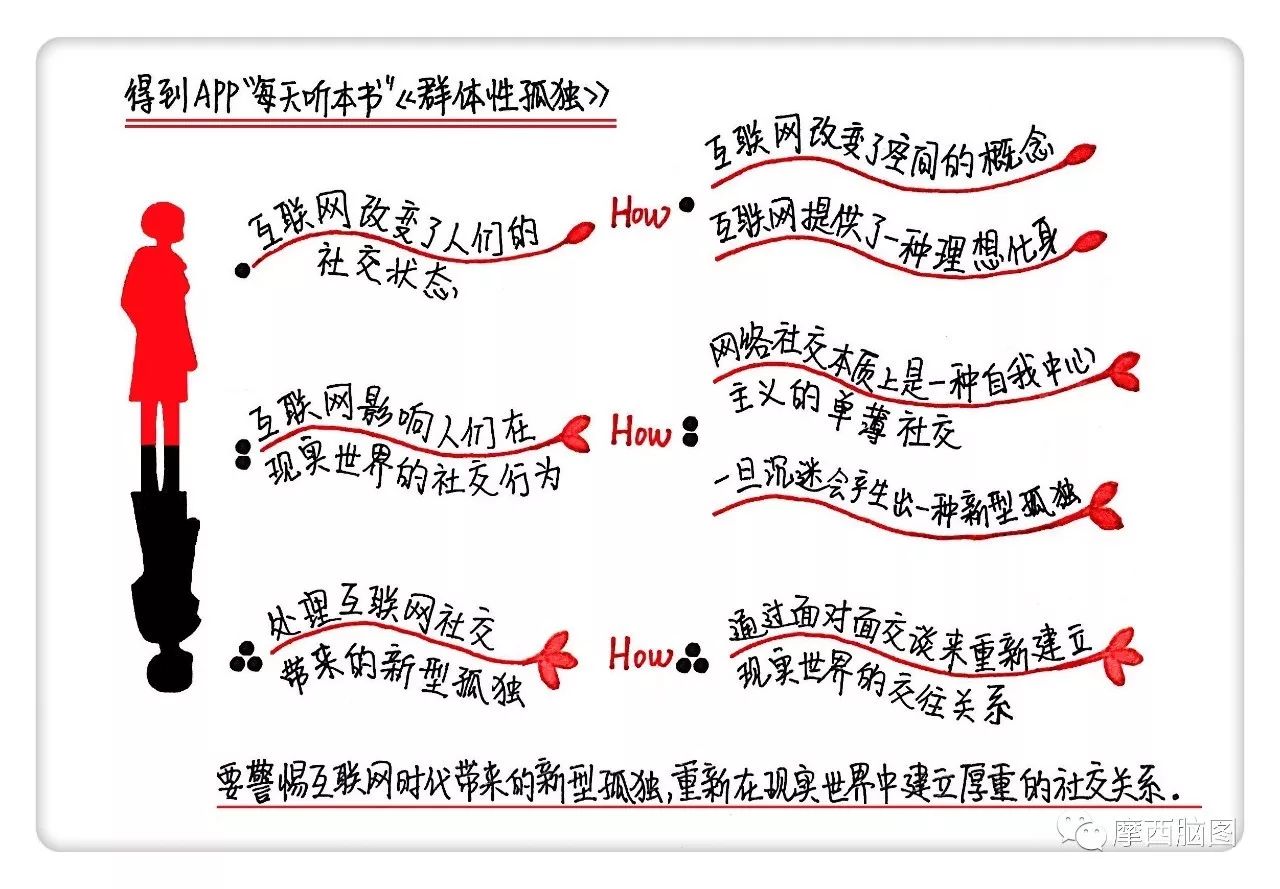 得到APP“每天听本书”《群体性孤独》
互联网改变了人们的
社交状态
How
互联网改变了空间的概念
互联网提供了一种理想化身
互联网影响人们在
现实世界的社交行为
How
网络社交本质上是一种自我中心
主义的单薄社交
一旦沉迷会产生出一种新型孤独
处理互联网社交
带来的新型孤独
How
通过面对面交谈来重新建立
现实世界的交往关系
要警惕互联网时代带来的新型孤独,重新在现实世界中建立厚重的社交关系.
摩西脑图